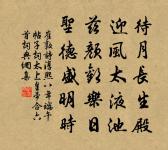 待月長生殿
迎風太液池
慈顏歡樂日
聖德盛明時
崔敦詩淳熙八年端午
帖子詞太上皇帝合六
首詞典網集